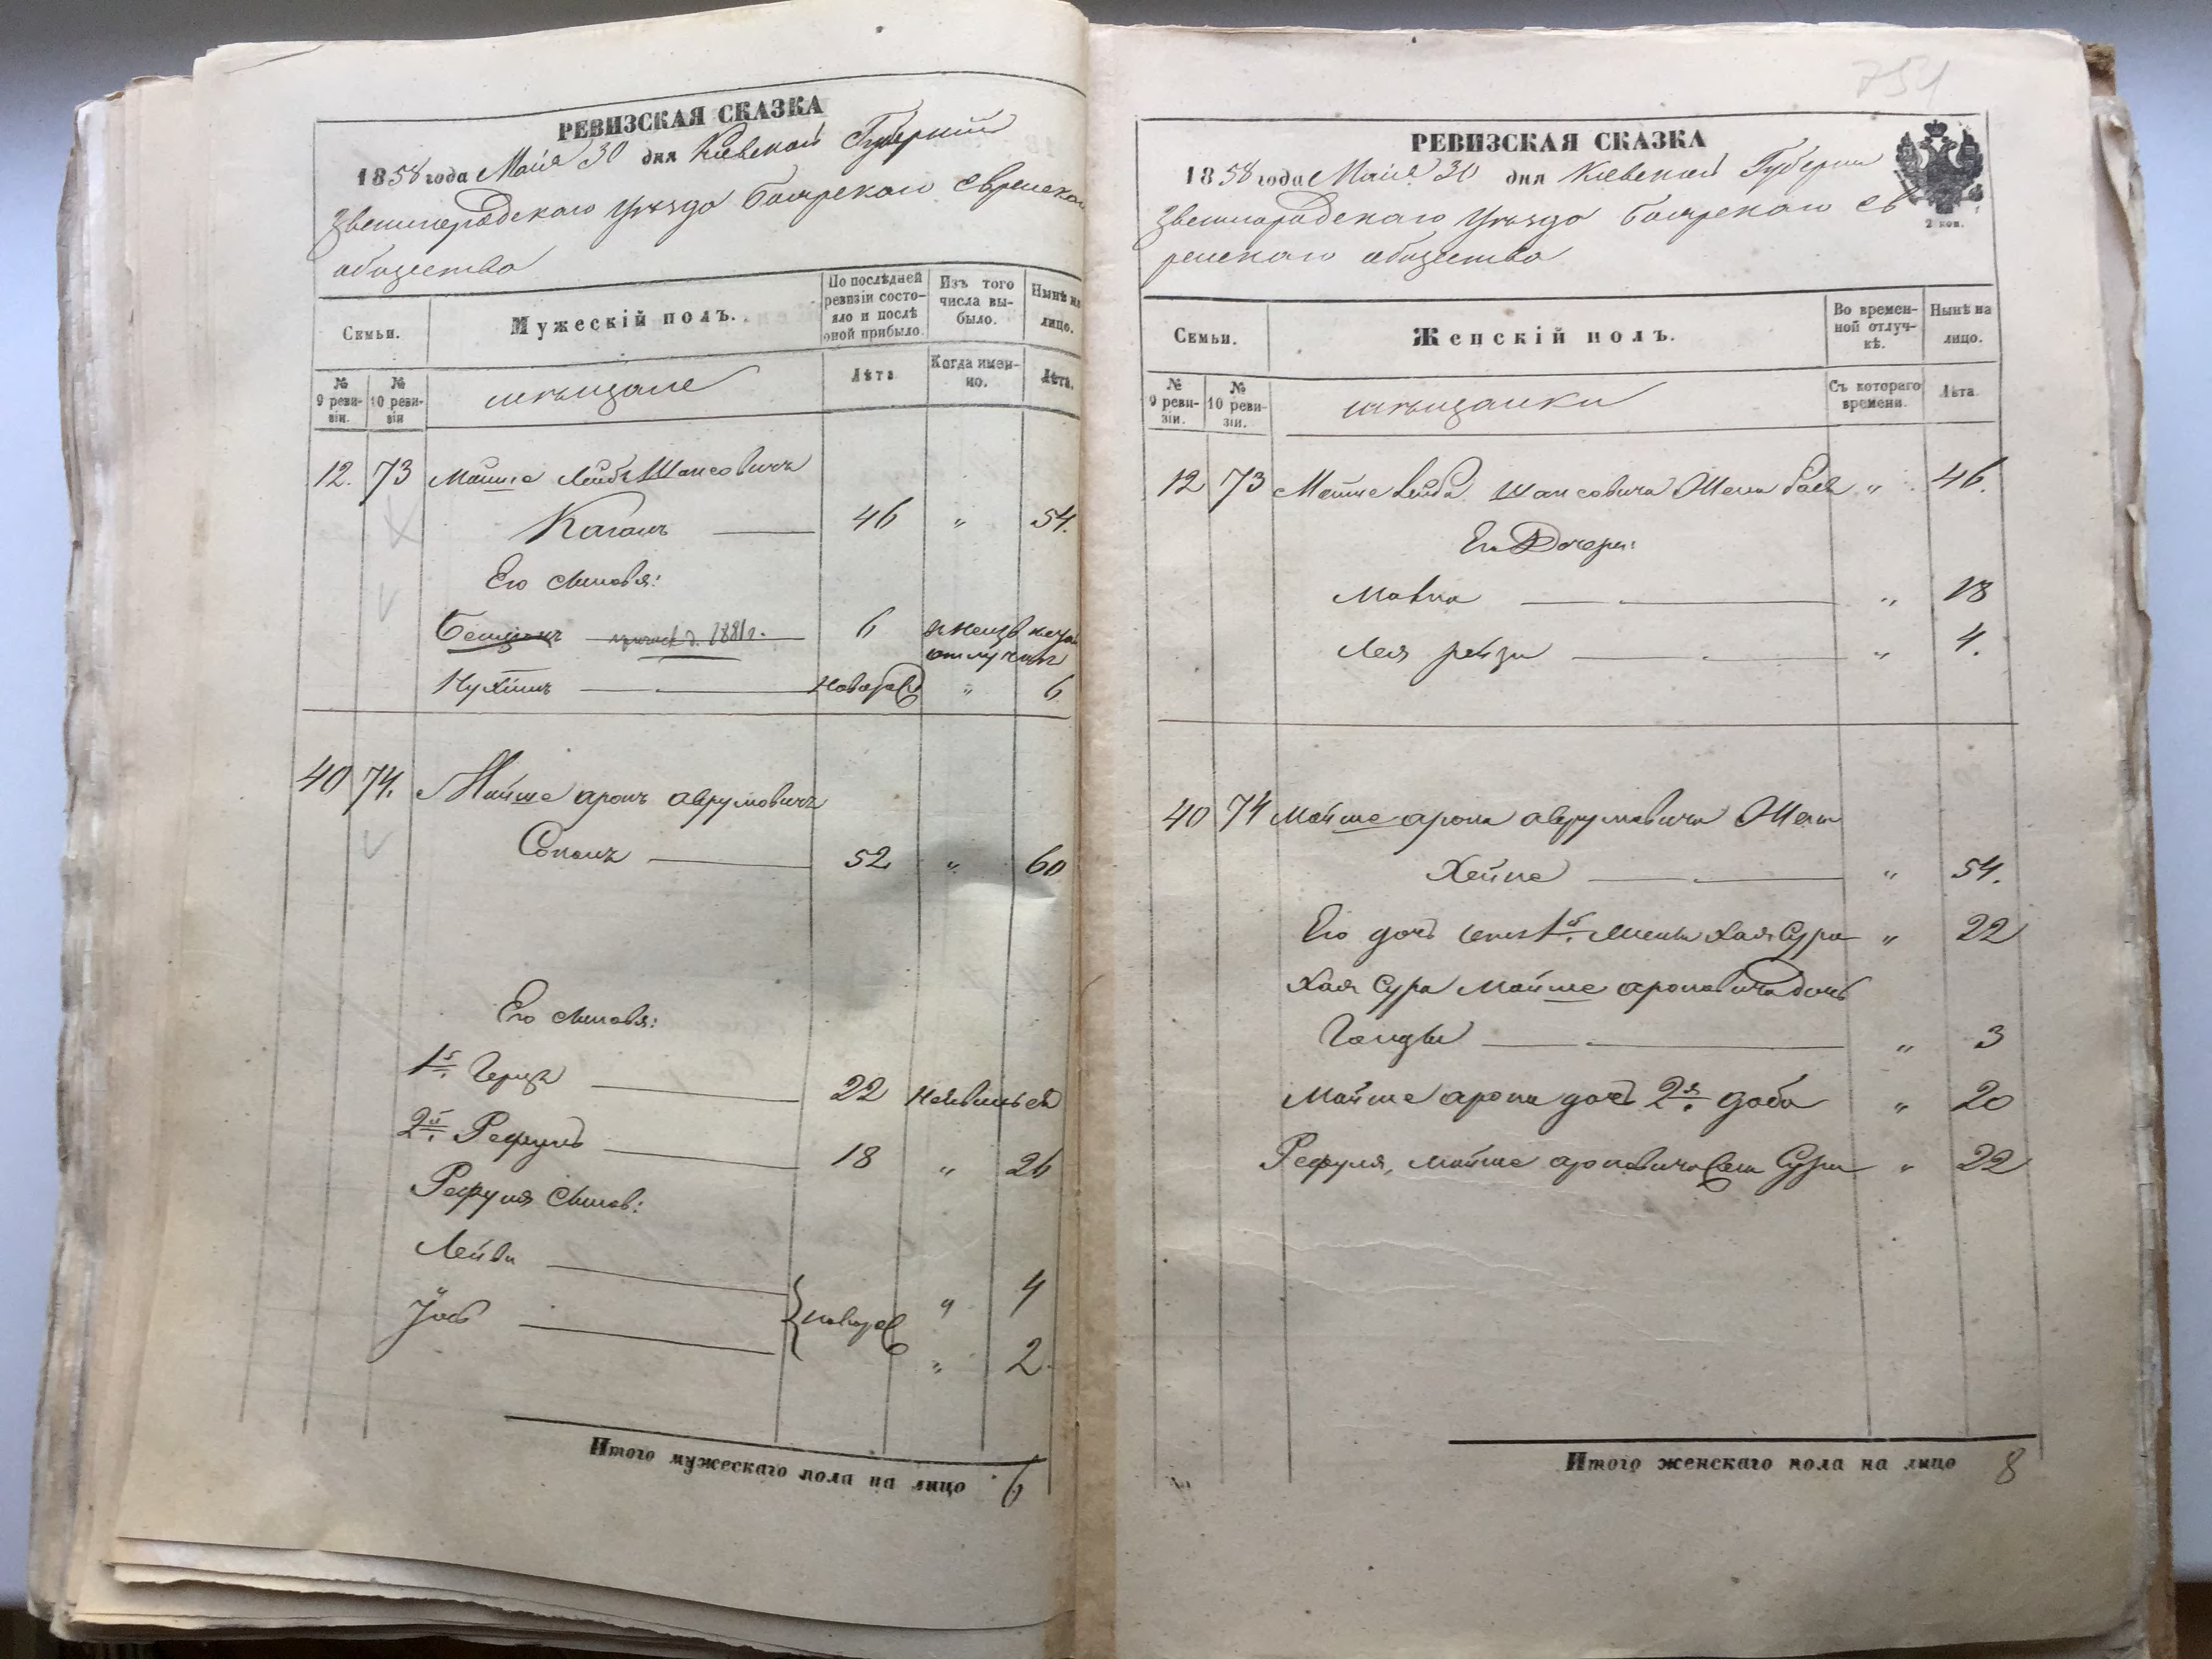 РЕВИЗСКАЯ СКАЗКА
1858 года Маія 30 дня Кіевской Губерніи
Звенигородскаго уѣзда Боярскаго Еврейскаго
общества
Семьи.
Мужескій полъ.
По послѣдней ревизіи состояло и послѣ оной прибыло.
Изъ того числа выбыло.
Нынѣ на лицо.
№ 9 ревизіи.
№ 10 ревизіи
мѣщане
Лѣта
Когда именно.
Лѣта.
12. 73 Мойше Лейбъ Шапсовичъ
Каганъ 46 " 54.
Его сыновя:
1881 г. 6
отлучкѣ
Нухимъ новорож " 6
40 74. Мойше аронъ аврумовичъ
52 " 60
Его сыновя:
1й Герцъ 22 неявился
2й Рефуль 18 " 26
Рефуля сынов:
Лейба " 4
Іосъ новорож " 2
Итого мужескаго пола на лицо 6
751
РЕВИЗСКАЯ СКАЗКА
1858 года Маія 30 дня Кіевской Губерніи
Звенигородскаго уѣзда Боярскаго Ев
рейскаго общества
2 коп.
Семьи.
Женскій полъ.
Во временной отлучкѣ.
Нынѣ на лицо.
№ 9 ревизіи.
№ 10 ревизіи.
мѣщанки
Съ котораго времени.
Лѣта
12 73 Мойше Лейба Шапсовича Жена " 46.
Его Дочери:
" 18
Лея рейзя " 4.
40 74 Мойше арона аврумовича Жена
Хейпе " 54.
Его дочь жены Хая Сура " 22
Хая Сура Мойше ароновича дочь
" 3
Мойше арона дочь 2я доба " 20
Рефуля, мойше ароновича жена Сура " 22
Итого женскаго пола на лицо 8